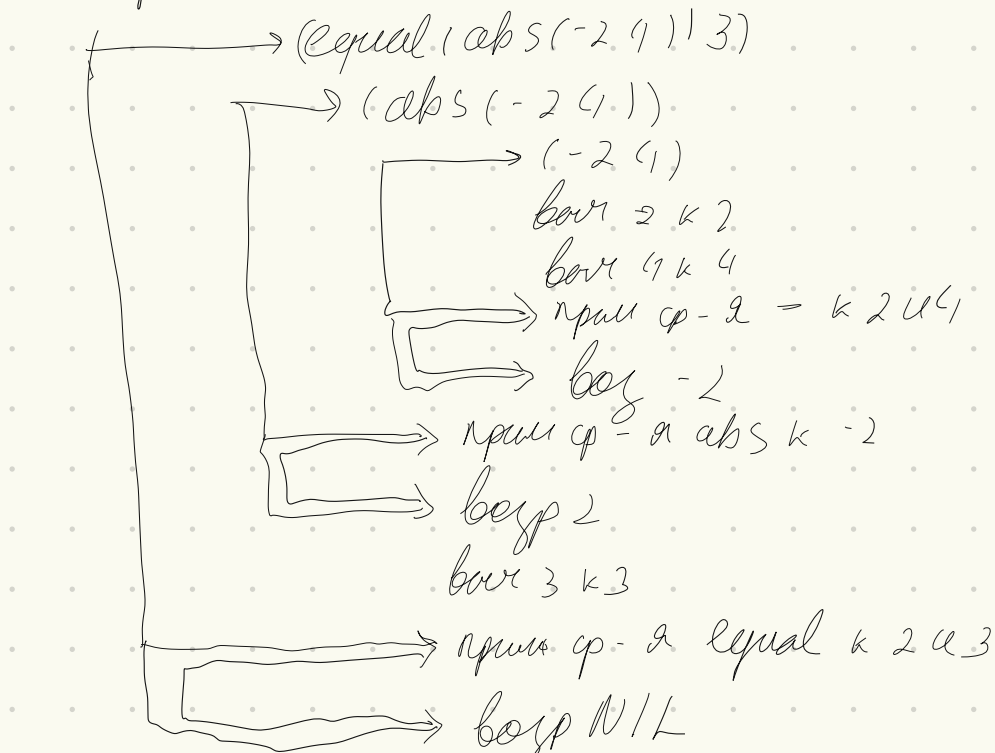 (equal (abs(-2 4)) 3)
(abs (-2 4))
(-2 4)
выч 2 к 2
выч 4 к 4
прим ф-я - к 2 и 4
воз -2
прим ф-я abs к -2
возр 2
выч 3 к 3
прим ф-я equal к 2 и 3
возр NIL